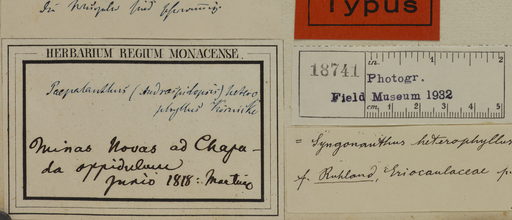 Typus
HERBARIUM REGIUM MONACENSE.
Paepalanthus (Androcephalopsis) hetero
phyllus Körnicke
Minas Novas ad Chapa-
da oppidulum
Junio 1818: Martius
in. 1 2
18741 Photogr.
Field Museum 1932
cm. 1 2 3 4 5
= Syngonanthus heterophyllus
f. Ruhland, Eriocaulaceae p